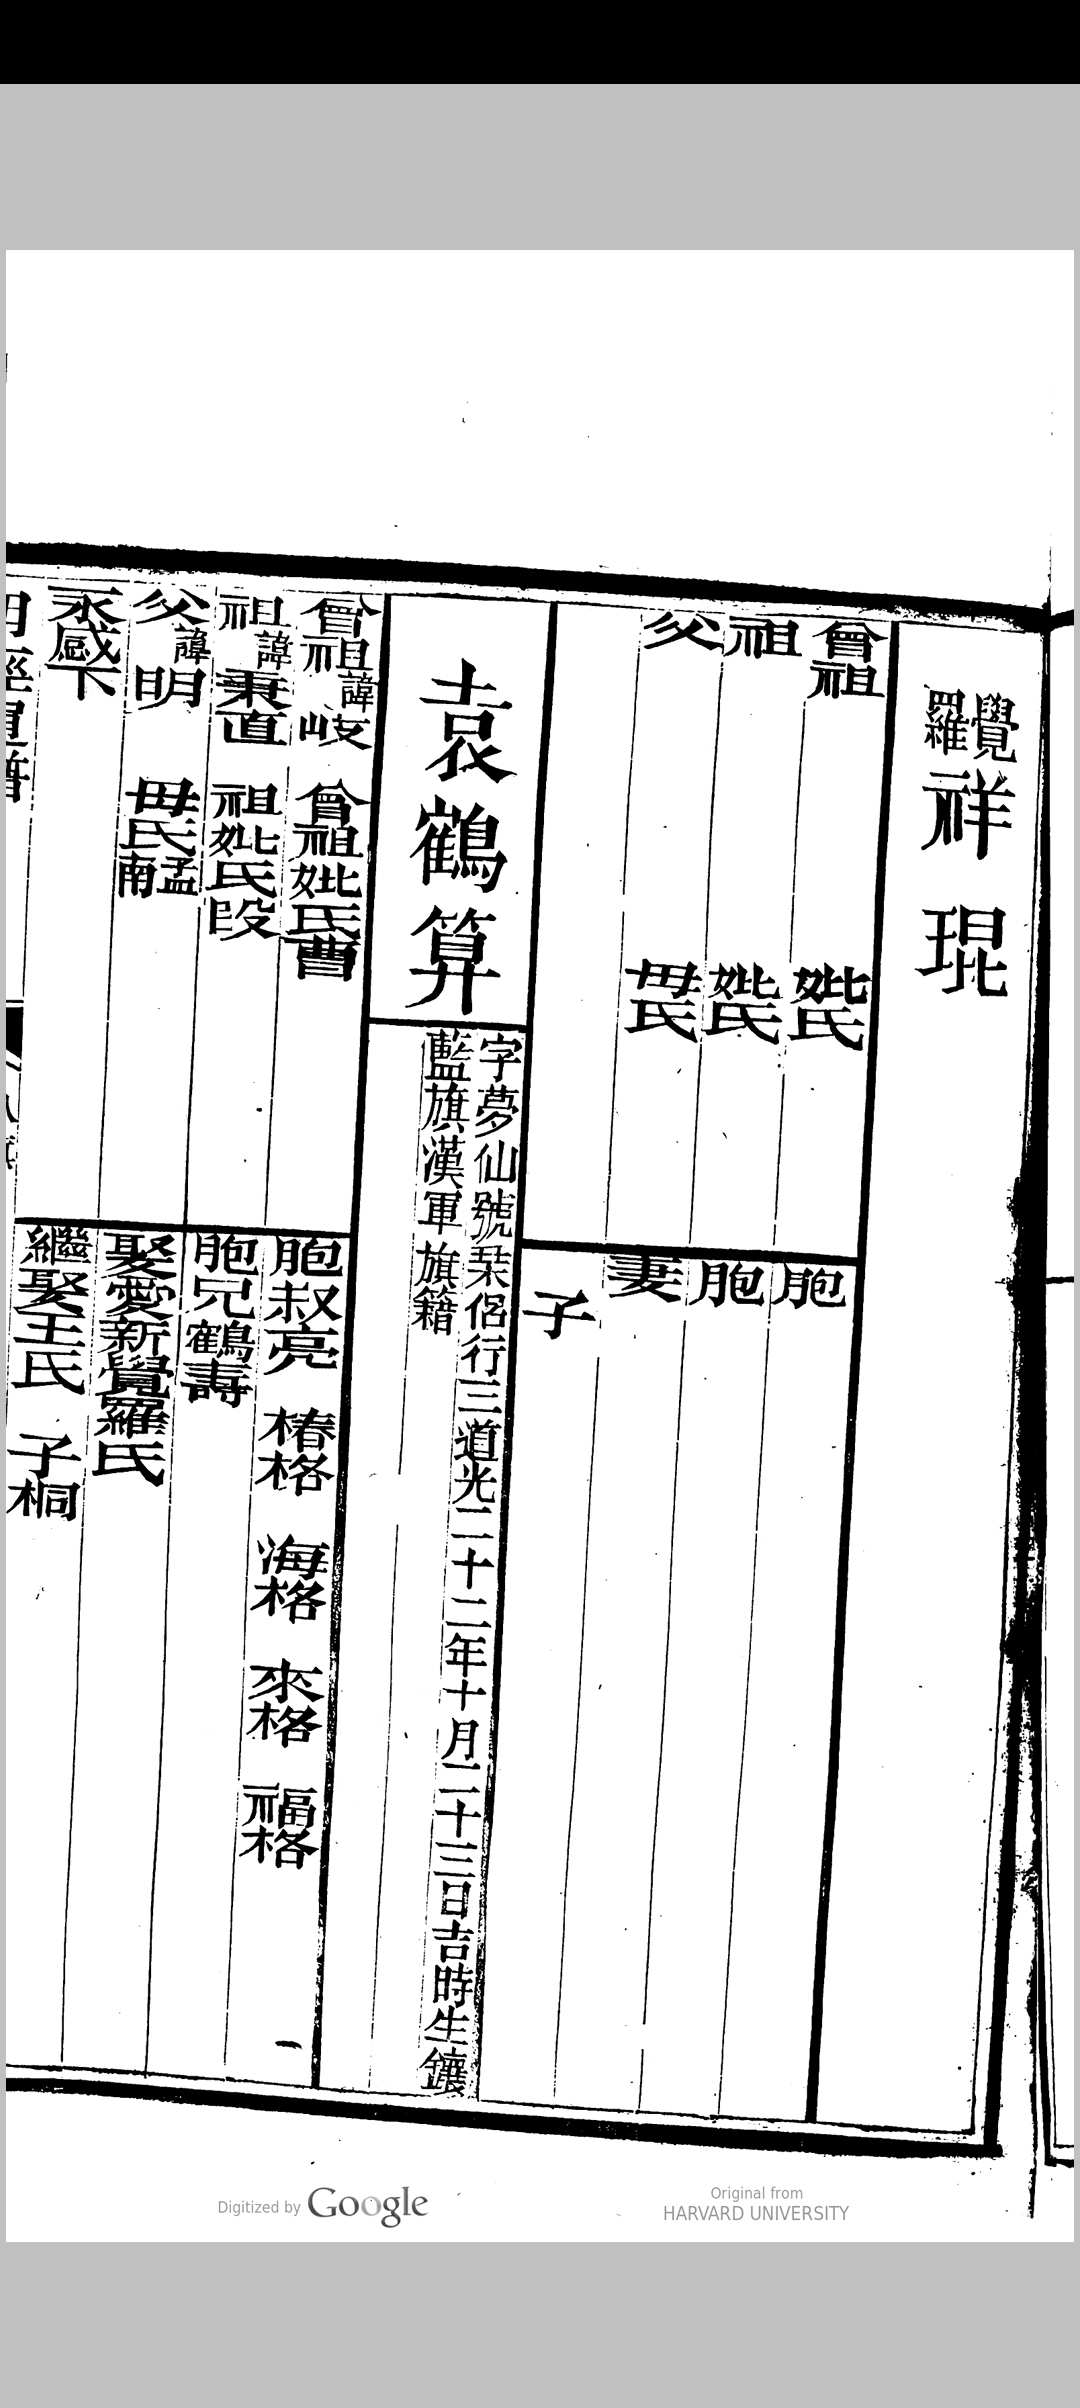 覺羅祥琨
曾祖 妣氏
祖 妣氏
父 母氏
胞
胞
妻
子
袁鶴算
字夢仙號琹侶行三道光二十二年十月二十三日吉時生鑲
藍旗漢軍旗籍
曾祖諱岐 曾祖妣氏曹
祖諱秉直 祖妣氏段
父諱明 母氏孟南
永感下
胞叔亮 椿格 海格 來格 福格
胞兄鶴壽
娶愛新覺羅氏
繼娶王氏 子桐
Digitized by Google
Original from
HARVARD UNIVERSITY